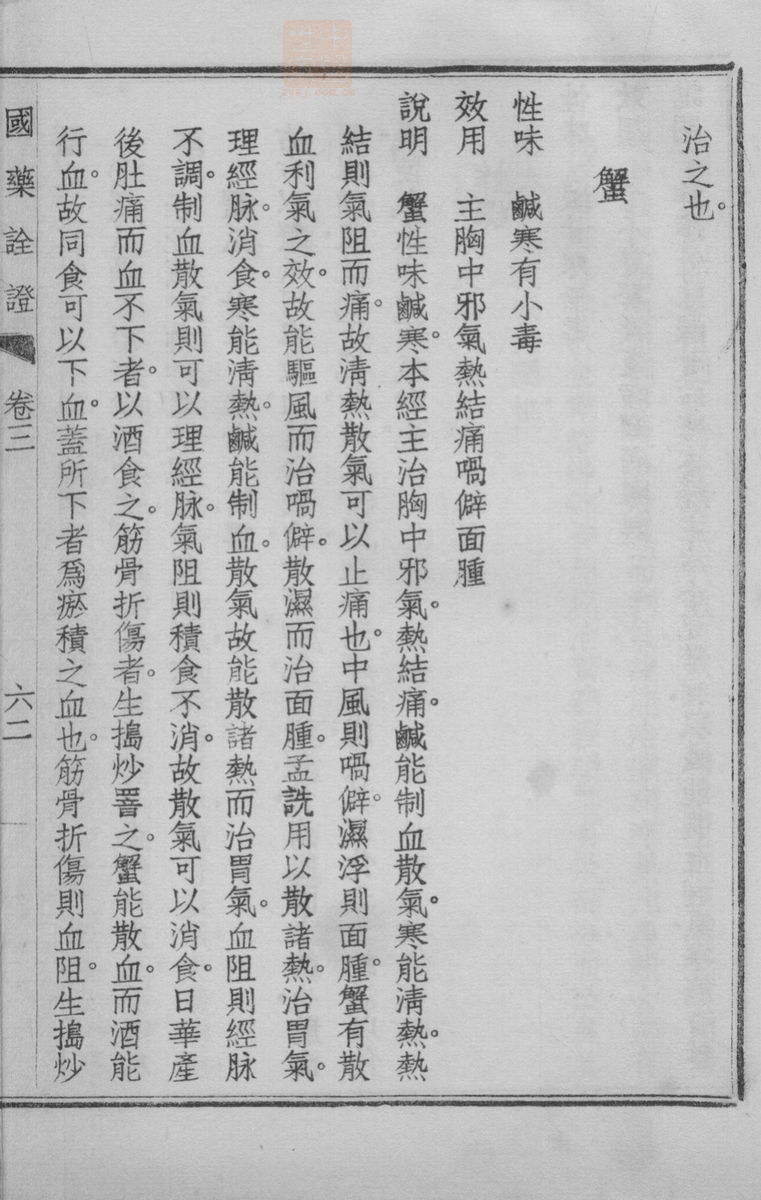 治之也。
蟹
性味　鹹寒有小毒
效用　主胸中邪氣熱結痛喎僻面腫
說明　蟹性味鹹寒。本經主治胸中邪氣。熱結痛。鹹能制血散氣。寒能淸熱。熱
結則氣阻而痛。故淸熱散氣可以止痛也。中風則喎僻。濕浮則面腫。蟹有散
血利氣之效。故能驅風而治喎僻。散濕而治面腫。孟詵用以散諸熱。治胃氣。
理經脉。消食。寒能淸熱。鹹能制血。散氣故能散諸熱而治胃氣。血阻則經脉
不調。制血散氣則可以理經脉。氣阻則積食不消。故散氣可以消食。日華產
後肚痛而血不下者。以酒食之。筋骨折傷者。生搗炒罯之。蟹能散血。而酒能
行血。故同食可以下血。蓋所下者爲瘀積之血也。筋骨折傷則血阻。生搗炒
國藥詮證　卷三　六二